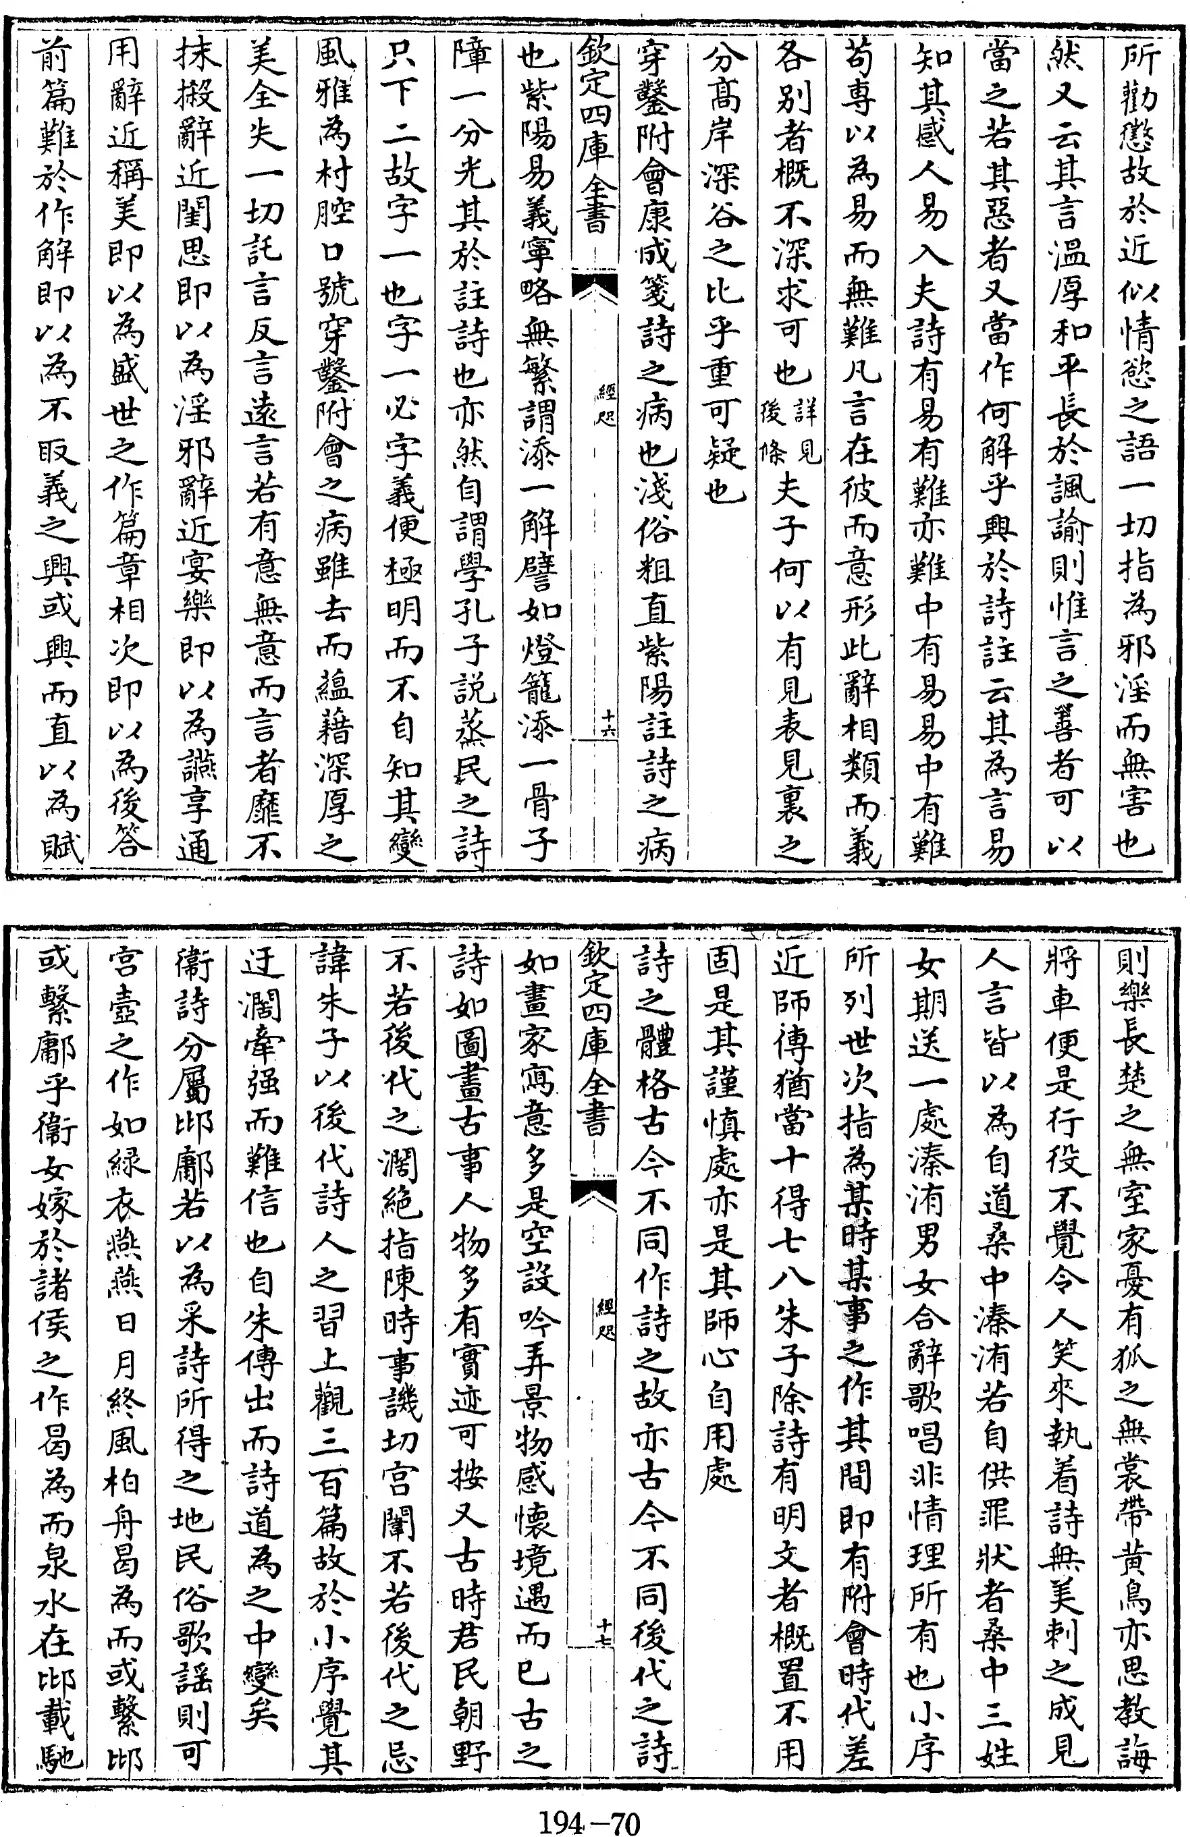 所勸懲故於近似情慾之語一切指為邪淫而無害也
然又云其言溫厚和平長於諷諭則惟言之善者可以
當之若其惡者又當作何解乎興於詩註云其為言易
知其感人易入夫詩有易有難亦難中有易易中有難
苟專以為易而無難凡言在彼而意形此辭相類而義
各別者概不深求可也詳見後條夫子何以有見表見裏之
分高岸深谷之比乎重可疑也
穿鑿附會康成箋詩之病也淺俗粗直紫陽註詩之病
欽定四庫全書
經咫
十六
也紫陽易義寧略無繁謂添一解譬如燈籠添一骨子
障一分光其於註詩也亦然自謂學孔子説蒸民之詩
只下二故字一也字一必字義便極明而不自知其變
風雅為村腔口號穿鑿附會之病雖去而蘊藉深厚之
美全失一切託言反言遠言若有意無意而言者靡不
抹摋辭近閨思即以為淫邪辭近宴樂即以為讌享通
用辭近稱美即以為盛世之作篇章相次即以為後答
前篇難於作解即以為不取義之興或興而直以為賦
則樂長楚之無室家憂有狐之無裳帶黃鳥亦思教誨
將車便是行役不覺令人笑來執着詩無美刺之成見
人言皆以為自道桑中溱洧若自供罪狀者桑中三姓
女期送一處溱洧男女合辭歌唱非情理所有也小序
所列世次指為某時某事之作其間即有附會時代差
近師傳猶當十得七八朱子除詩有明文者概置不用
固是其謹慎處亦是其師心自用處
詩之體格古今不同作詩之故亦古今不同後代之詩
欽定四庫全書
經咫
十七
如畫家寫意多是空設吟弄景物感懷境遇而已古之
詩如圖畫古事人物多有實迹可按又古時君民朝野
不若後代之濶絶指陳時事譏切宮闈不若後代之忌
諱朱子以後代詩人之習上觀三百篇故於小序覺其
迂濶牽强而難信也自朱傳出而詩道為之中變矣
衞詩分屬邶鄘若以為采詩所得之地民俗歌謡則可
宮壼之作如緑衣燕燕日月終風柏舟曷為而或繫邶
或繫鄘乎衞女嫁於諸侯之作曷為而泉水在邶載馳
194-70